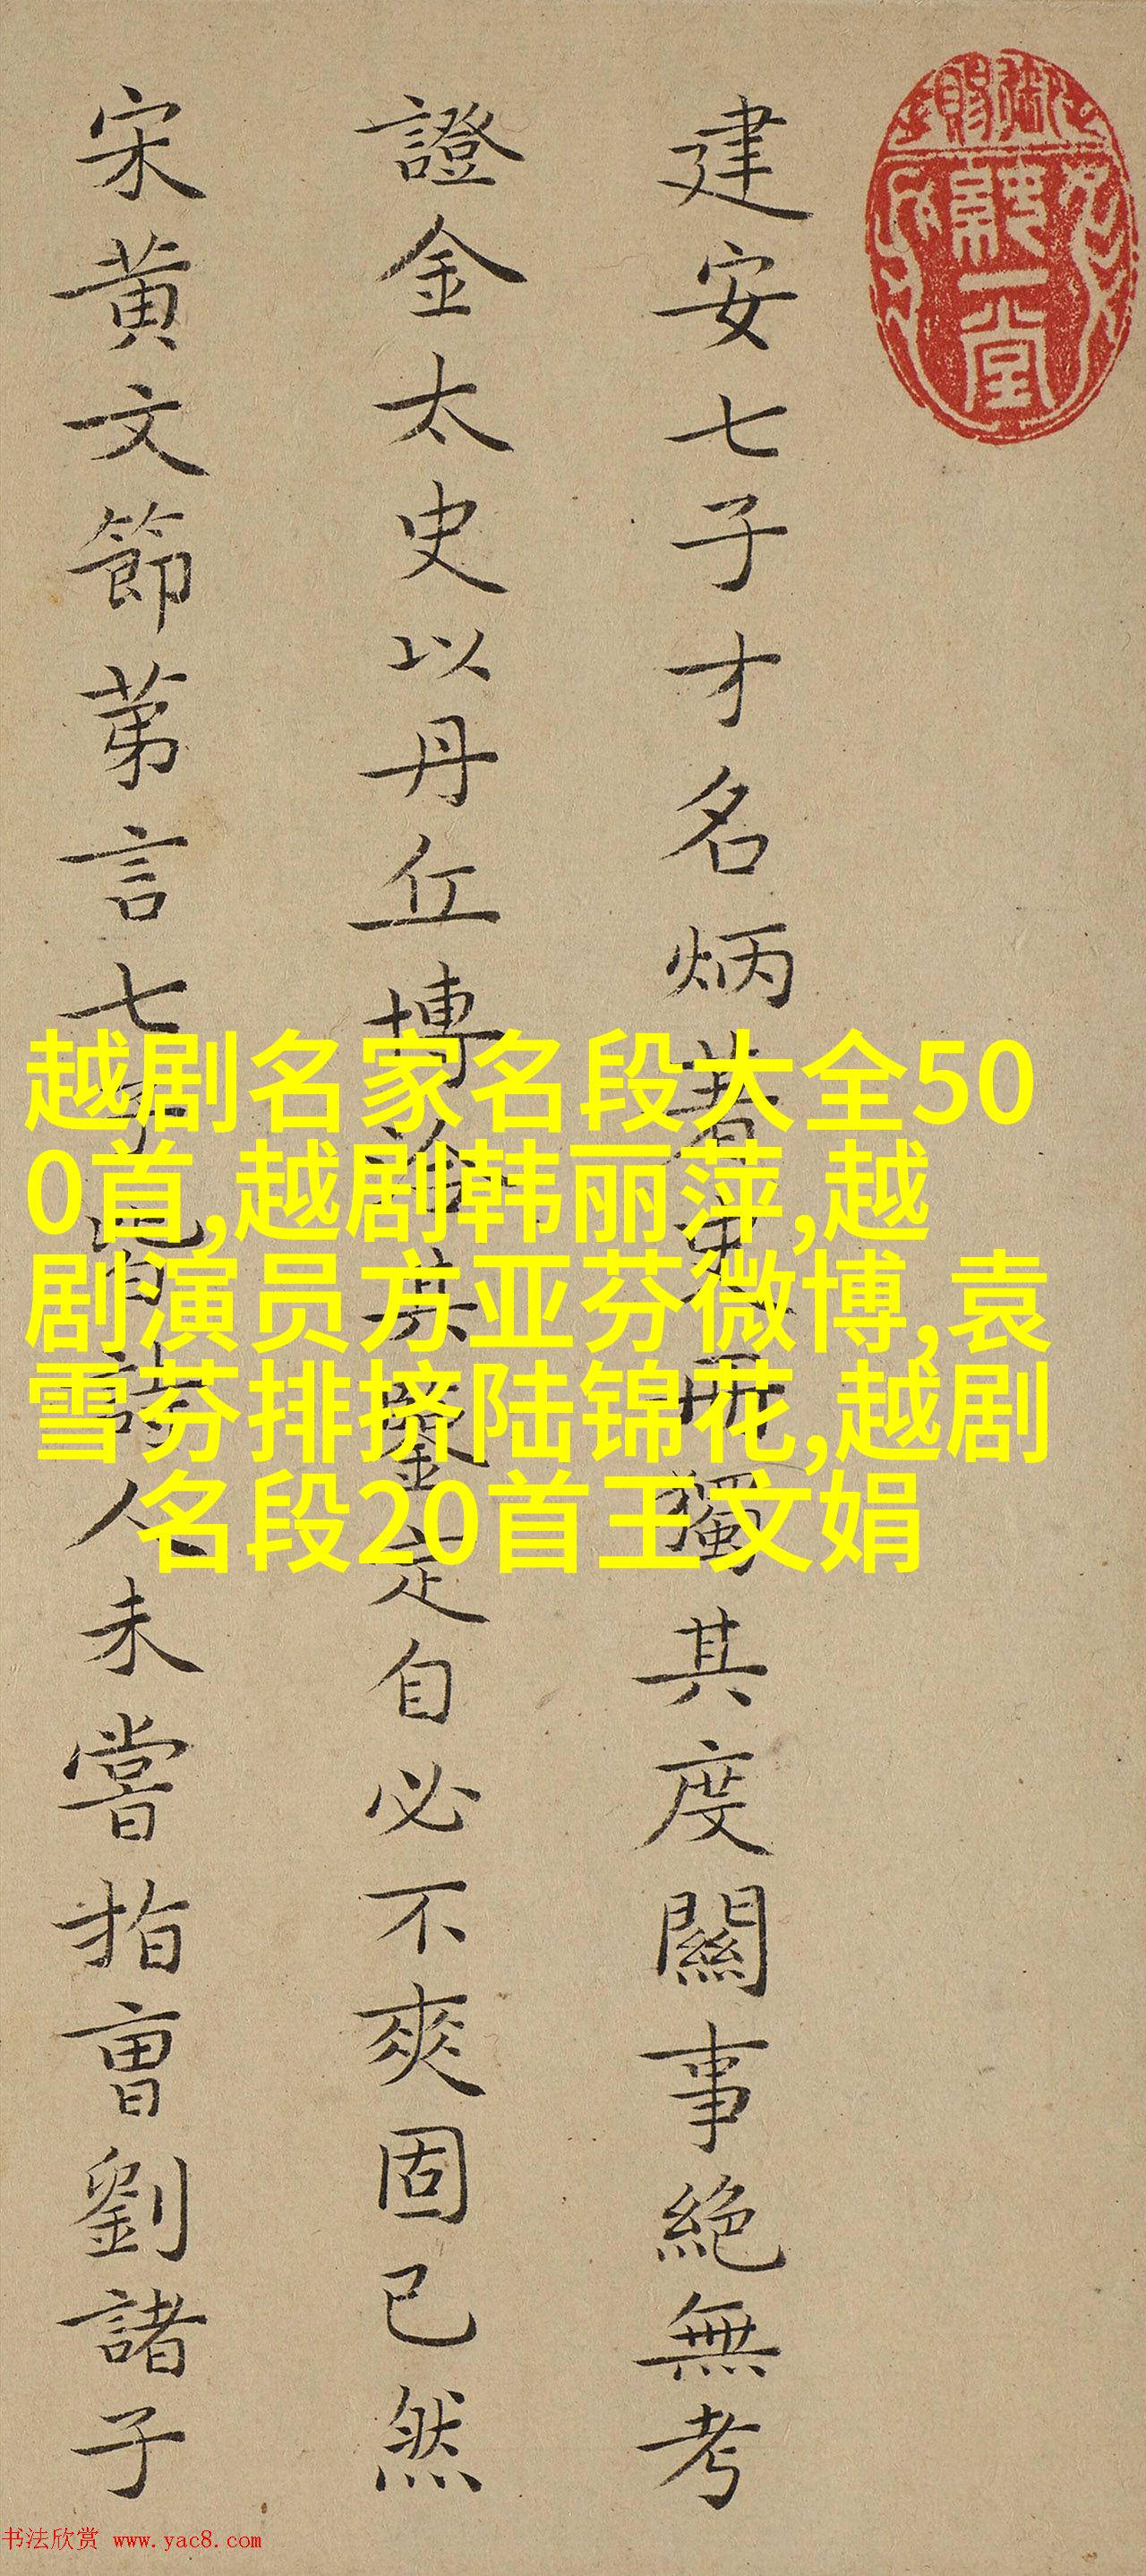 建安七子才名炳著史冊獨其度關事絕無考
證金太史以丹丘博洽其鑒定自必不爽固已然
宋黃文節苐言七子皆詩人未嘗指曹劉諸子
越剧名家名段大全50
0首,越剧韩丽萍,越
剧演员方亚芬微博,袁
雪芬排挤陆锦花,越剧
名段20首王文娟
书法欣赏 www.yac8.com